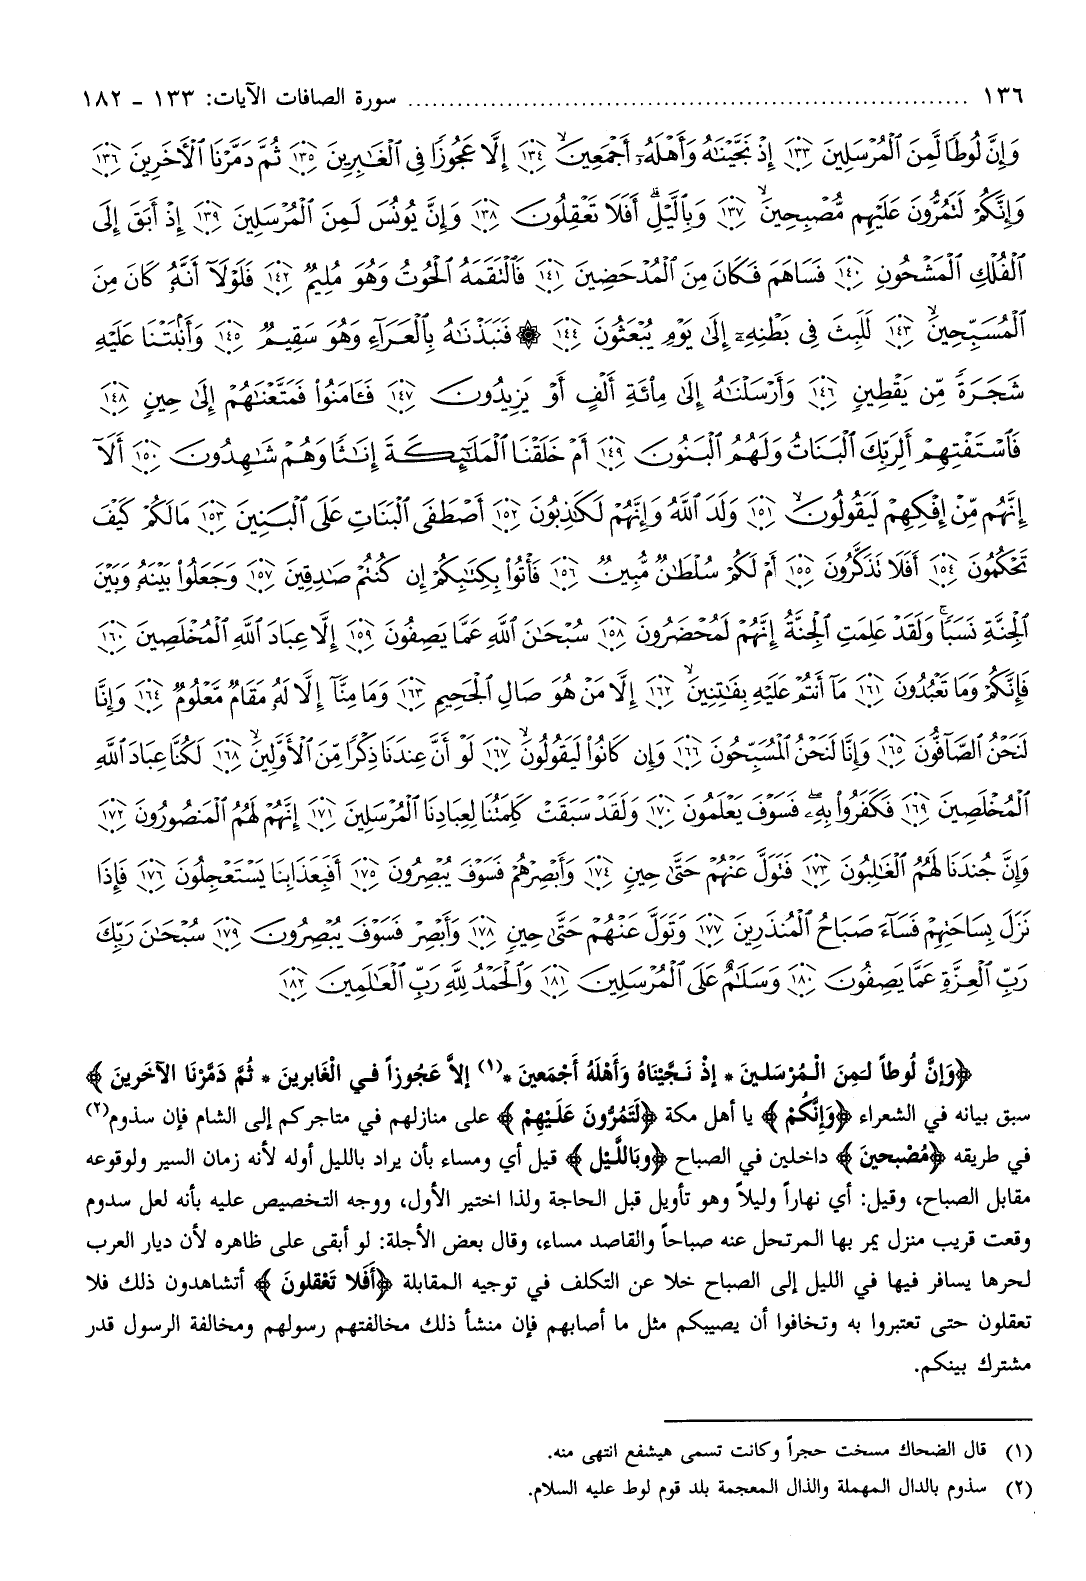 ١٣٦ ........................................................... سورة الصافات الآيات: ١٣٣ - ١٨٢
وَإِنَّ لُوطًا لَّمِنَ ٱلْمُرْسَلِينَ ١٣٣ إِذْ نَجَّيْنَاهُ وَأَهْلَهُۥٓ أَجْمَعِينَ ١٣٤ إِلَّا عَجُوزًا فِى ٱلْغَٰبِرِينَ ١٣٥ ثُمَّ دَمَّرْنَا ٱلْأَخَرِينَ ١٣٦
وَإِنَّكُمْ لَتَمُرُّونَ عَلَيْهِم مُّصْبِحِينَ ١٣٧ وَبِٱلَّيْلِ أَفَلَا تَعْقِلُونَ ١٣٨ وَإِنَّ يُونُسَ لَمِنَ ٱلْمُرْسَلِينَ ١٣٩ إِذْ أَبَقَ إِلَى
ٱلْفُلْكِ ٱلْمَشْحُونِ ١٤٠ فَسَاهَمَ فَكَانَ مِنَ ٱلْمُدْحَضِينَ ١٤١ فَٱلْتَقَمَهُ ٱلْحُوتُ وَهُوَ مُلِيمٌ ١٤٢ فَلَوْلَآ أَنَّهُۥ كَانَ مِنَ
ٱلْمُسَبِّحِينَ ١٤٣ لَلَبِثَ فِى بَطْنِهِۦٓ إِلَىٰ يَوْمِ يُبْعَثُونَ ١٤٤ ۞ فَنَبَذْنَٰهُ بِٱلْعَرَآءِ وَهُوَ سَقِيمٌ ١٤٥ وَأَنۢبَتْنَا عَلَيْهِ
شَجَرَةً مِّن يَقْطِينٍ ١٤٦ وَأَرْسَلْنَٰهُ إِلَىٰ مِا۟ئَةِ أَلْفٍ أَوْ يَزِيدُونَ ١٤٧ فَـَٔامَنُوا۟ فَمَتَّعْنَٰهُمْ إِلَىٰ حِينٍ ١٤٨
فَٱسْتَفْتِهِمْ أَلِرَبِّكَ ٱلْبَنَاتُ وَلَهُمُ ٱلْبَنُونَ ١٤٩ أَمْ خَلَقْنَا ٱلْمَلَٰٓئِكَةَ إِنَٰثًا وَهُمْ شَٰهِدُونَ ١٥٠ أَلَآ
إِنَّهُم مِّنْ إِفْكِهِمْ لَيَقُولُونَ ١٥١ وَلَدَ ٱللَّهُ وَإِنَّهُمْ لَكَٰذِبُونَ ١٥٢ أَصْطَفَى ٱلْبَنَاتِ عَلَى ٱلْبَنِينَ ١٥٣ مَالَكُمْ كَيْفَ
تَحْكُمُونَ ١٥٤ أَفَلَا تَذَكَّرُونَ ١٥٥ أَمْ لَكُمْ سُلْطَٰنٌ مُّبِينٌ ١٥٦ فَأْتُوا۟ بِكِتَٰبِكُمْ إِن كُنتُمْ صَٰدِقِينَ ١٥٧ وَجَعَلُوا۟ بَيْنَهُۥ وَبَيْنَ
ٱلْجِنَّةِ نَسَبًا ۚ وَلَقَدْ عَلِمَتِ ٱلْجِنَّةُ إِنَّهُمْ لَمُحْضَرُونَ ١٥٨ سُبْحَٰنَ ٱللَّهِ عَمَّا يَصِفُونَ ١٥٩ إِلَّا عِبَادَ ٱللَّهِ ٱلْمُخْلَصِينَ ١٦٠
فَإِنَّكُمْ وَمَا تَعْبُدُونَ ١٦١ مَآ أَنتُمْ عَلَيْهِ بِفَٰتِنِينَ ١٦٢ إِلَّا مَنْ هُوَ صَالِ ٱلْجَحِيمِ ١٦٣ وَمَا مِنَّآ إِلَّا لَهُۥ مَقَامٌ مَّعْلُومٌ ١٦٤ وَإِنَّا
لَنَحْنُ ٱلصَّآفُّونَ ١٦٥ وَإِنَّا لَنَحْنُ ٱلْمُسَبِّحُونَ ١٦٦ وَإِن كَانُوا۟ لَيَقُولُونَ ١٦٧ لَوْ أَنَّ عِندَنَا ذِكْرًا مِّنَ ٱلْأَوَّلِينَ ١٦٨ لَكُنَّا عِبَادَ ٱللَّهِ
ٱلْمُخْلَصِينَ ١٦٩ فَكَفَرُوا۟ بِهِۦ ۖ فَسَوْفَ يَعْلَمُونَ ١٧٠ وَلَقَدْ سَبَقَتْ كَلِمَتُنَا لِعِبَادِنَا ٱلْمُرْسَلِينَ ١٧١ إِنَّهُمْ لَهُمُ ٱلْمَنصُورُونَ ١٧٢
وَإِنَّ جُندَنَا لَهُمُ ٱلْغَٰلِبُونَ ١٧٣ فَتَوَلَّ عَنْهُمْ حَتَّىٰ حِينٍ ١٧٤ وَأَبْصِرْهُمْ فَسَوْفَ يُبْصِرُونَ ١٧٥ أَفَبِعَذَابِنَا يَسْتَعْجِلُونَ ١٧٦ فَإِذَا
نَزَلَ بِسَاحَتِهِمْ فَسَآءَ صَبَاحُ ٱلْمُنذَرِينَ ١٧٧ وَتَوَلَّ عَنْهُمْ حَتَّىٰ حِينٍ ١٧٨ وَأَبْصِرْ فَسَوْفَ يُبْصِرُونَ ١٧٩ سُبْحَٰنَ رَبِّكَ
رَبِّ ٱلْعِزَّةِ عَمَّا يَصِفُونَ ١٨٠ وَسَلَٰمٌ عَلَى ٱلْمُرْسَلِينَ ١٨١ وَٱلْحَمْدُ لِلَّهِ رَبِّ ٱلْعَٰلَمِينَ ١٨٢
﴿وَإِنَّ لُوطاً لَمِنَ الْمُرْسَلينَ * إِذْ نَجَّيْنَاهُ وَأَهْلَهُ أَجْمَعينَ *(١) إلاَّ عَجُوزاً في الْغَابرينَ * ثُمَّ دَمَّرْنَا الآخَرينَ﴾
سبق بيانه في الشعراء ﴿وَإِنَّكُمْ﴾ يا أهل مكة ﴿لَتَمُرُّونَ عَلَيْهِمْ﴾ على منازلهم في متاجركم إلى الشام فإن سذوم(٢)
في طريقه ﴿مُصْبحينَ﴾ داخلين في الصباح ﴿وبَاللَّيْل﴾ قيل أي ومساء بأن يراد بالليل أوله لأنه زمان السير ولوقوعه
مقابل الصباح، وقيل: أي نهاراً وليلاً وهو تأويل قبل الحاجة ولذا اختير الأول، ووجه التخصيص عليه بأنه لعل سدوم
وقعت قريب منزل يمر بها المرتحل عنه صباحاً والقاصد مساء، وقال بعض الأجلة: لو أبقى على ظاهره لأن ديار العرب
لحرها يسافر فيها في الليل إلى الصباح خلا عن التكلف في توجيه المقابلة ﴿أَفَلا تَعْقلونَ﴾ أتشاهدون ذلك فلا
تعقلون حتى تعتبروا به وتخافوا أن يصيبكم مثل ما أصابهم فإن منشأ ذلك مخالفتهم رسولهم ومخالفة الرسول قدر
مشترك بينكم.
(١) قال الضحاك مسخت حجراً وكانت تسمى هيشفع انتهى منه.
(٢) سذوم بالدال المهملة والذال المعجمة بلد قوم لوط عليه السلام.